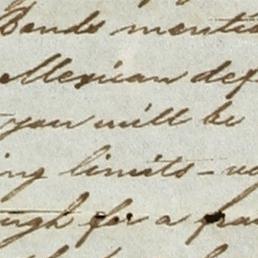 Bonds mentio
Mexican def
you will be
ing limits -
ugh for a fra